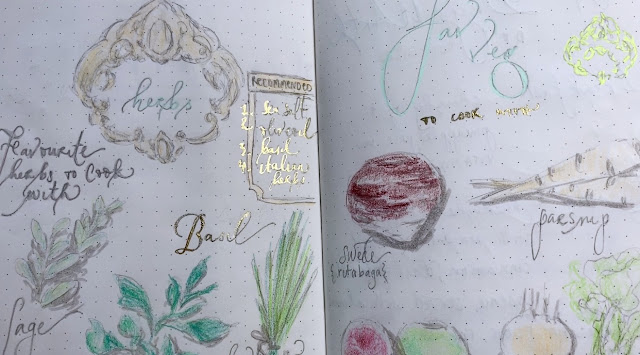 herbs
RECOMMENDED
1. Sea salt
2.
3. basil
4. italian
herbs
Favourite
herbs to cook
with
Basil
Sage
Fav
Veg
TO COOK WITH
parsnip
swede
{rutabaga}